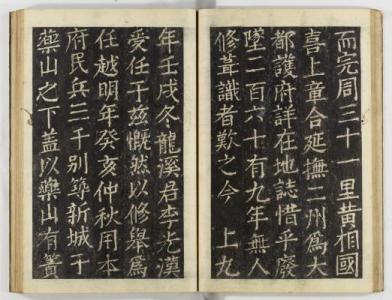 而完周三十一里黃相國
喜上章合延撫二州爲大
都護府詳在地誌惜乎廢
墜二百六十有九年無人
修葺識者歎之今 上九
年壬戌冬龍溪君李光漢
受任于玆慨然以修舉爲
任越明年癸亥仲秋用本
府民兵三千別築新城于
藥山之下盖以藥山有簣